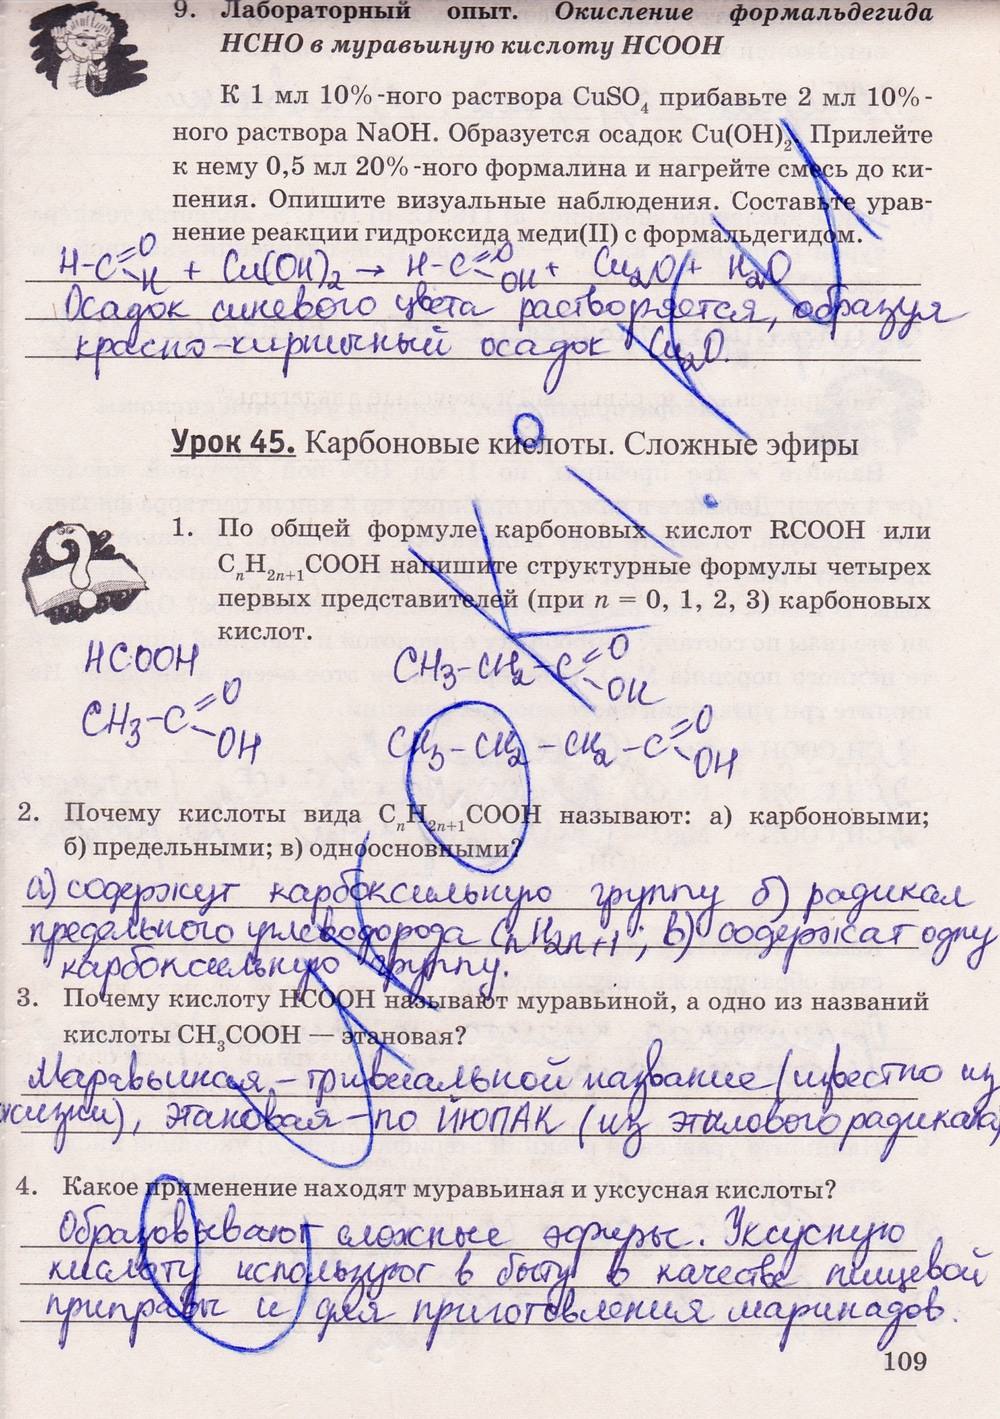 9. Лабораторный опыт. Окисление формальдегида
HCHO в муравьиную кислоту HCOOH
К 1 мл 10%-ного раствора CuSO₄ прибавьте 2 мл 10%-
ного раствора NaOH. Образуется осадок Cu(OH)₂. Прилейте
к нему 0,5 мл 20%-ного формалина и нагрейте смесь до ки-
пения. Опишите визуальные наблюдения. Составьте урав-
нение реакции гидроксида меди(II) с формальдегидом.
H-C=O H + Cu(OH)₂ → H-C=O OH + Cu₂O + H₂O
Осадок синевого цвета растворяется, образуя
красно-кирпичный осадок Cu₂O.
Урок 45. Карбоновые кислоты. Сложные эфиры
1. По общей формуле карбоновых кислот RCOOH или
CₙH₂ₙ₊₁COOH напишите структурные формулы четырех
первых представителей (при n = 0, 1, 2, 3) карбоновых
кислот.
HCOOH
CH₃-CH₂-C=O OH
CH₃-C=O OH
CH₃-CH₂-CH₂-C=O OH
2. Почему кислоты вида CₙH₂ₙ₊₁COOH называют: а) карбоновыми;
б) предельными; в) одноосновными?
а) содержут карбоксильную группу б) радикал
предельного углеводорода CₙH₂ₙ₊₁; в) содержат одну
карбоксильную группу.
3. Почему кислоту HCOOH называют муравьиной, а одно из названий
кислоты CH₃COOH — этановая?
Маравьиная - тривиальной название (известно из
жизни), этановая - по ИЮПАК (из этилового радикала)
4. Какое применение находят муравьиная и уксусная кислоты?
Образовывают сложные эфиры. Уксусную
кислоту используют в быту в качестве пищевой
приправы и для приготовления маринадов.
109